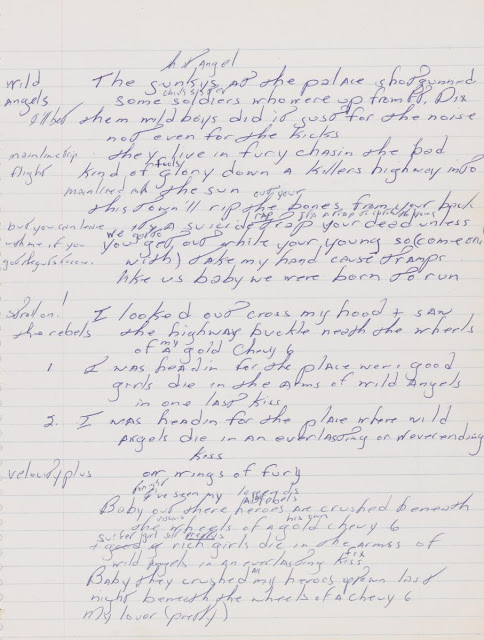 Angel
wild The Junkys at the palace shotgunned
Angels some soldiers who were up from Ft. Dix
I'll bet them wild boys did it just for the noise
not even for the kicks
mainline trip they live in fury chasin the bad
flight kind of glory down a killers highway
mainlined the sun out your
this town'll rip the bones from your back
but you can leave its a suicide trap your dead unless
with me if you we gotta you get out while your young so (come on
with) take my hand cause tramps
like us baby we were born to run
the rebels I looked out cross my hood + saw
the highway buckle neath the wheels
of a my gold Chevy 6
1. I was headin for the place were good
girls die in the arms of wild Angels
in one last kiss
2. I was headin for the place where wild
Angels die in an everlasting or neverending
kiss
velocity plus on wings of fury
I've seen my
Baby out there heroes are crushed beneath
the wheels of a gold chevy 6
+ good rich girls die in the arms of
wild Angels in an everlasting kiss
Baby they crushed all my heroes down last
night beneath the wheels of a chevy 6
my lover (pretty)